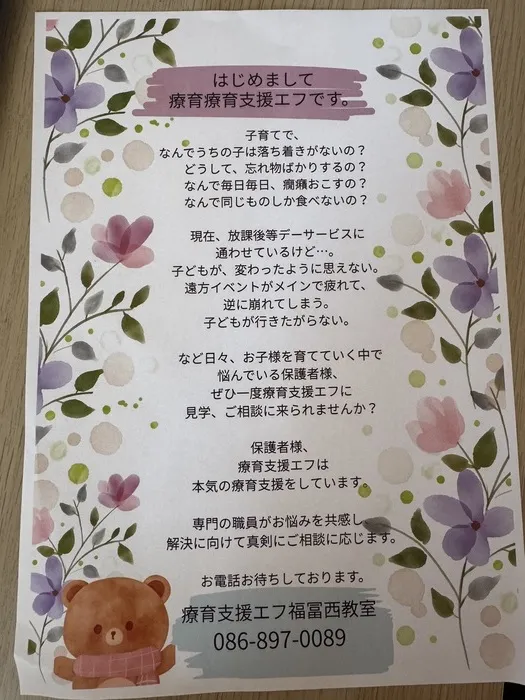 はじめまして
療育療育支援エフです。
子育てで、
なんでうちの子は落ち着きがないの？
どうして、忘れ物ばかりするの？
なんで毎日毎日、癇癪おこすの？
なんで同じものしか食べないの？
現在、放課後等デーサービスに
通わせているけど…。
子どもが、変わったように思えない。
遠方イベントがメインで疲れて、
逆に崩れてしまう。
子どもが行きたがらない。
など日々、お子様を育てていく中で
悩んでいる保護者様、
ぜひ一度療育支援エフに
見学、ご相談に来られませんか？
保護者様、
療育支援エフは
本気の療育支援をしています。
専門の職員がお悩みを共感し、
解決に向けて真剣にご相談に応じます。
お電話お待ちしております。
療育支援エフ福冨西教室
086-897-0089